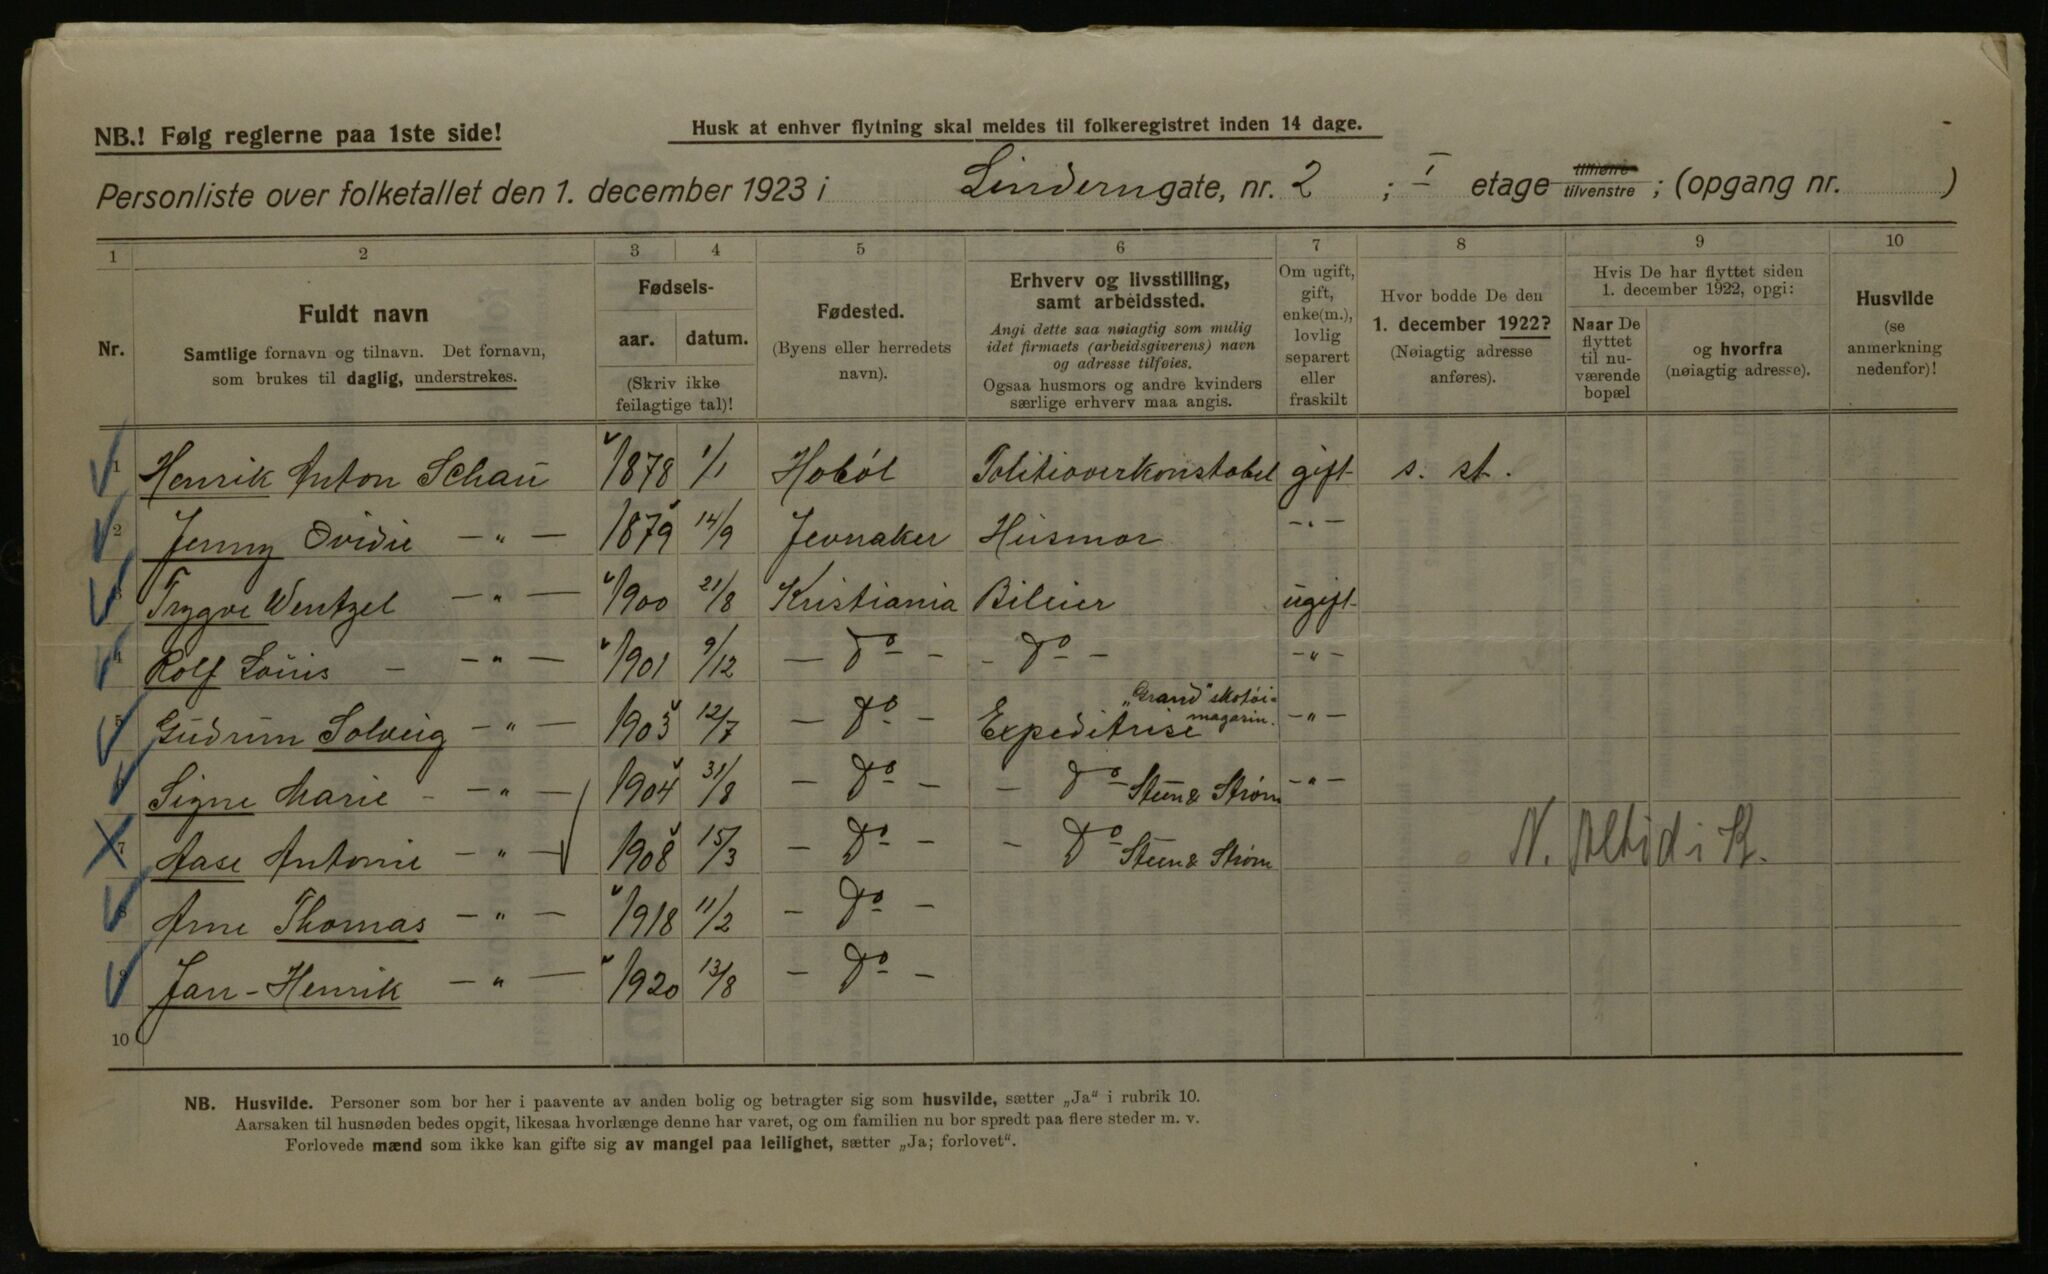 NB.! Følg reglerne paa 1ste side!
Husk at enhver flytning skal meldes til folkeregistret inden 14 dage.
Personliste over folketallet den 1. december 1923 i Linderngate, nr. 2 ; I etage tilhøire tilvenstre ; (opgang nr. )
1 2 3 4 5 6 7 8 9 10
Nr.
Fuldt navn
Samtlige fornavn og tilnavn. Det fornavn,
som brukes til daglig, understrekes.
Fødsels-
aar. datum.
(Skriv ikke
feilagtige tal)!
Fødested.
(Byens eller herredets
navn).
Erhverv og livsstilling,
samt arbeidssted.
Angi dette saa nøiagtig som mulig
idet firmaets (arbeidsgiverens) navn
og adresse tilføies.
Ogsaa husmors og andre kvinders
særlige erhverv maa angis.
Om ugift,
gift,
enke(m.),
lovlig
separert
eller
fraskilt
Hvor bodde De den
1. december 1922?
(Nøiagtig adresse
anføres).
Hvis De har flyttet siden
1. december 1922, opgi:
Naar De
flyttet
til nu-
værende
bopæl
og hvorfra
(nøiagtig adresse).
Husvilde
(se
anmerkning
nedenfor)!
1 Henrik Anton Schau 1878 1/1 Hobøl Politioverkonstabel gift s. st.
2 Jenny Ovidie — „ — 1879 14/9 Jevnaker Husmor — " —
3 Trygve Wentzel — „ — 1900 21/8 Kristiania Bileier ugift
4 Rolf Louis — — „ — 1901 9/12 — Do — — Do — — „ —
5 Gudrun Solveig — „ — 1903 12/7 — Do — Expeditrise „Grand" skotøi= magasin. — „ —
6 Signe Marie — — „ — 1904 31/8 — Do — — Do — Steen & Strøm — „ —
7 Aase Antonie — „ — 1908 15/3 — Do — — Do Steen & Strøm N. Altid i K.
8 Arne Thomas — „ — 1918 11/2 — Do —
9 Jan-Henrik — „ — 1920 13/8 — Do —
10
NB. Husvilde. Personer som bor her i paavente av anden bolig og betragter sig som husvilde, sætter „Ja" i rubrik 10.
Aarsaken til husnøden bedes opgit, likesaa hvorlænge denne har varet, og om familien nu bor spredt paa flere steder m. v.
Forlovede mænd som ikke kan gifte sig av mangel paa leilighet, sætter „Ja; forlovet".